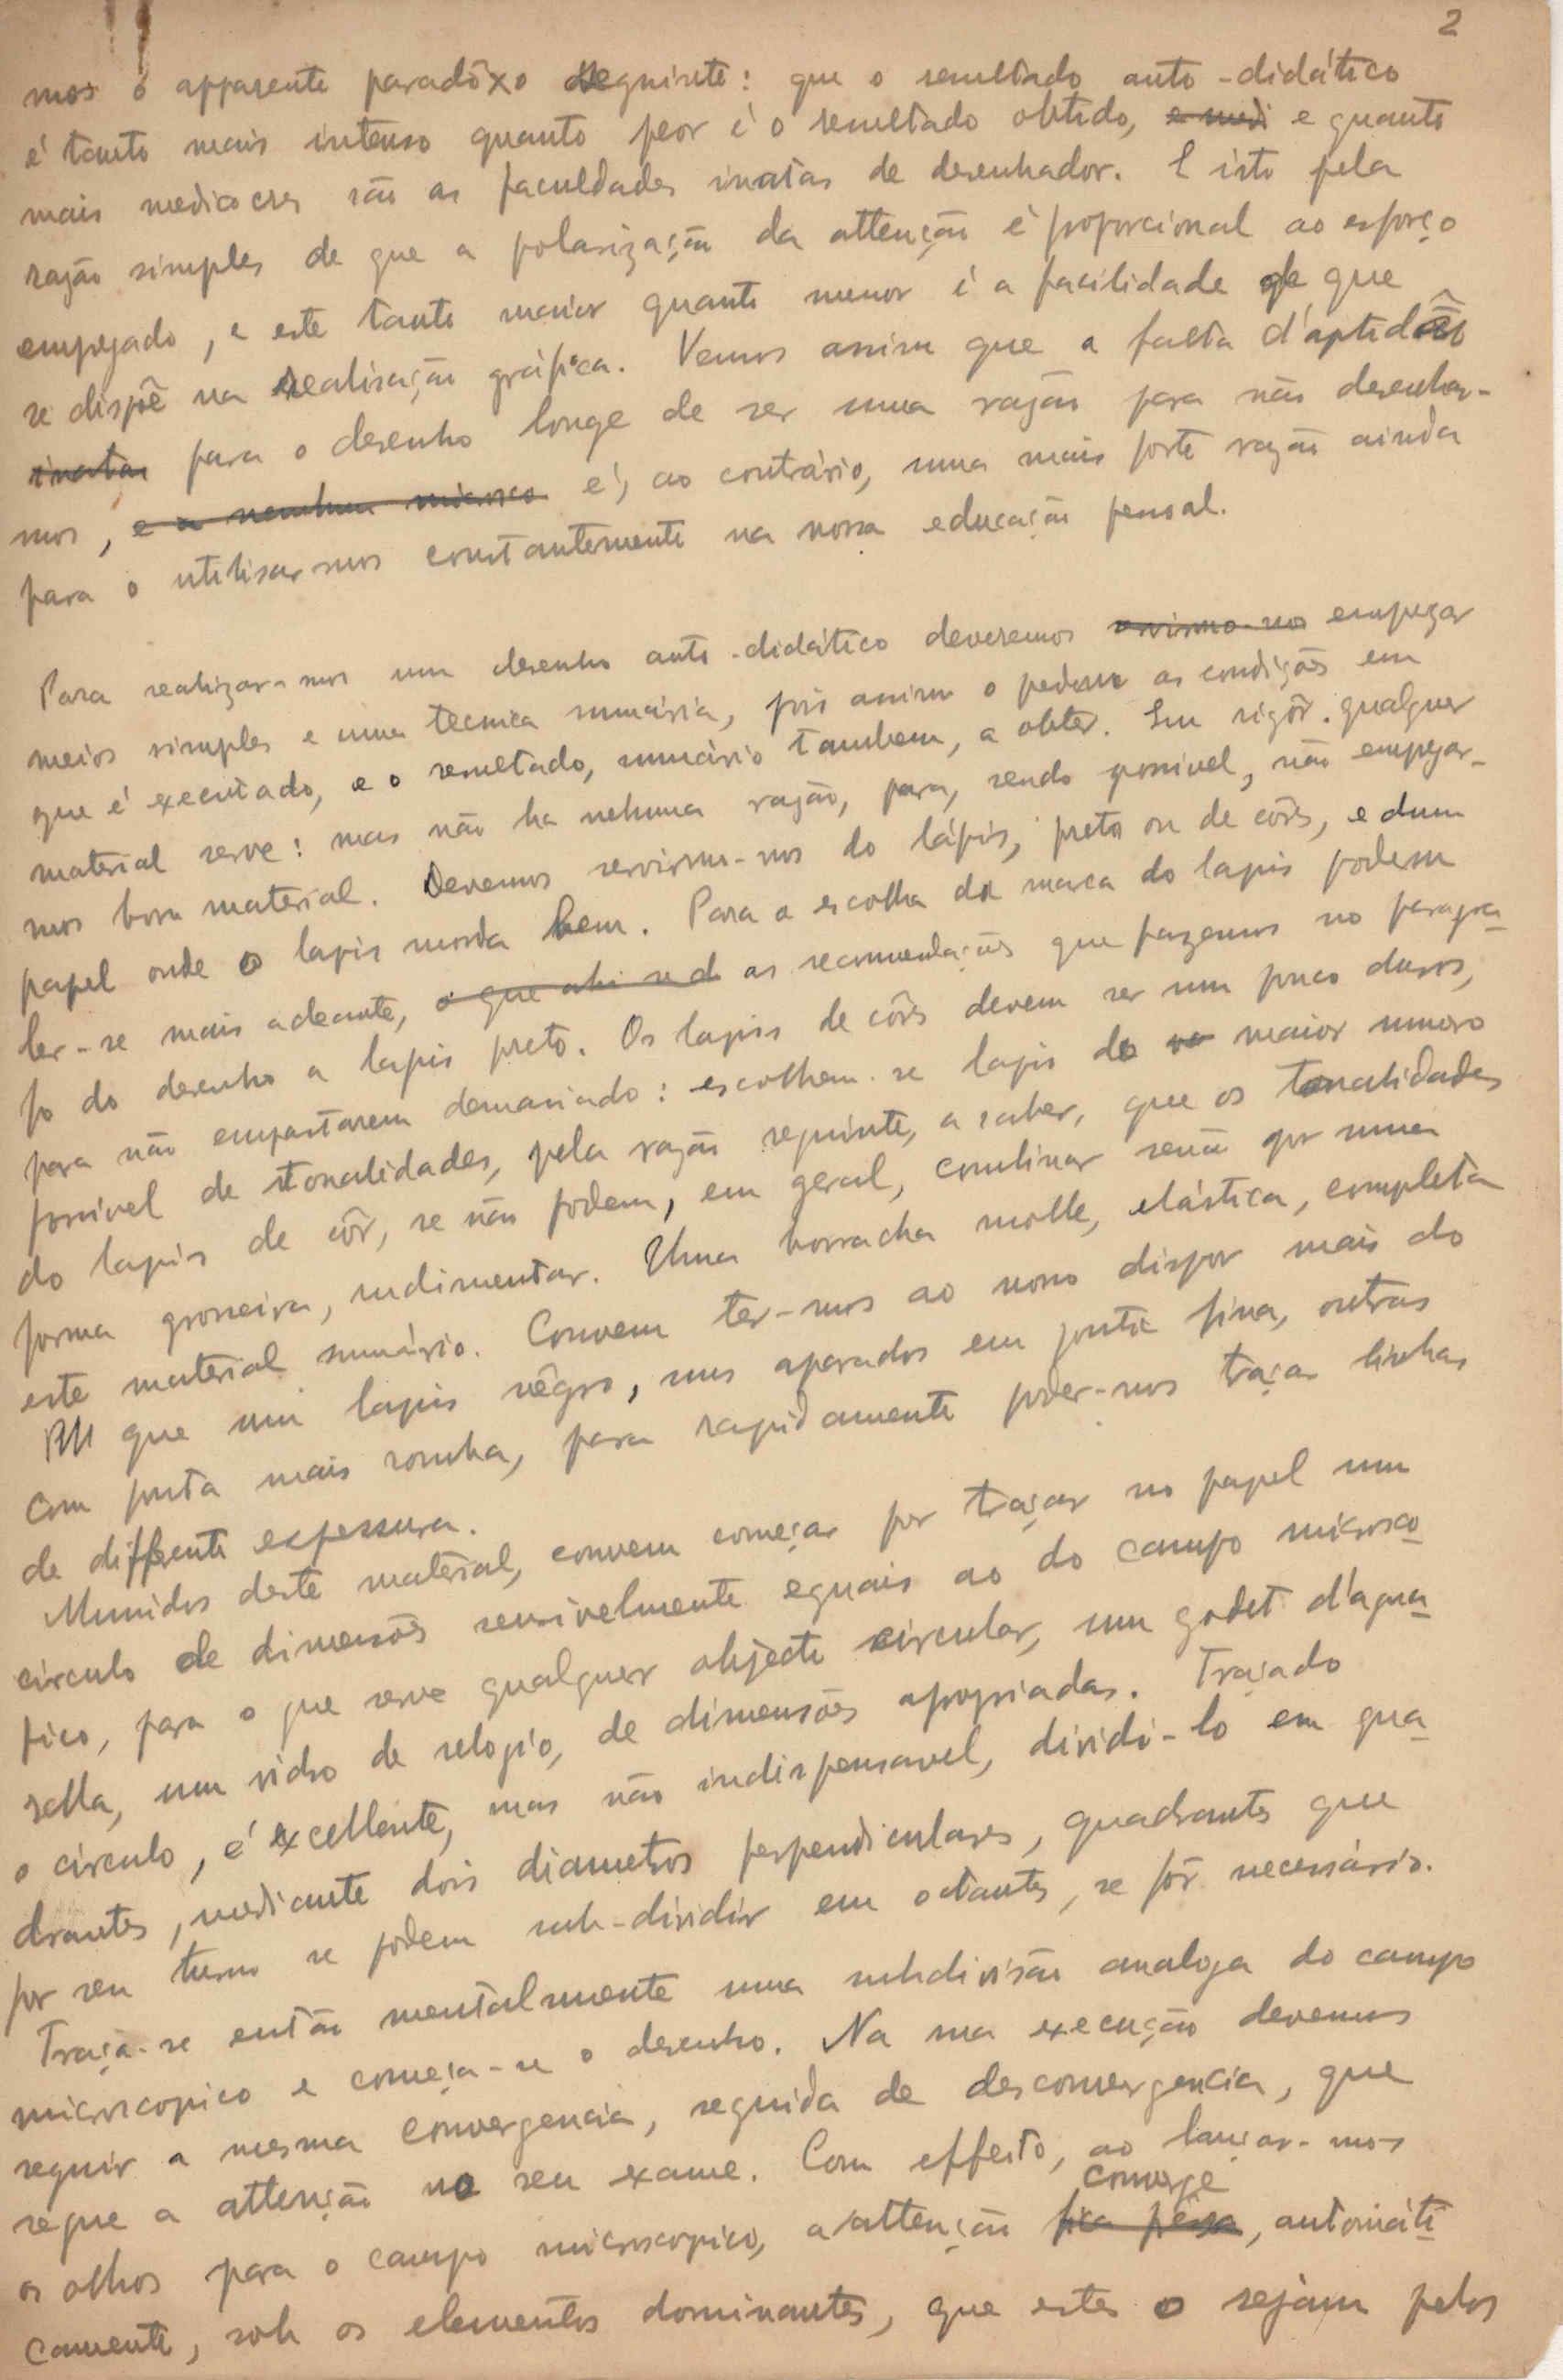 2
mos o apparente paradôxo seguinte: que o resultado auto-didático
é tanto mais intenso quanto peor é o resultado obtido, e medi e quanto
mais mediocres são as faculdades inatas de desenhador. E isto pela
razão simples de que a polarização da attenção é proporcional ao esforço
empregado, e este tanto maior quanto menor é a facilidade de que
se dispõe na realisação gráfica. Vemos assim que a falta d'aptidão
inatas para o desenho longe de ser uma razão para não desenhar-
mos, e a nenhum é, ao contrário, uma mais forte razão ainda
para o utilisarmos constantemente na nossa educação pessoal.
Para realizar-mos um desenho auto-didático deveremos empregar
meios simples e uma tecnica sumária, pois assim o pedem as condições em
que é executado, e o resultado, sumário tambem, a obter. Em rigôr qualquer
material serve: mas não ha nehuma razão, para, sendo possivel, não empregar-
mos bom material. Devemos servirmo-nos do lápis, preto ou de côres, e dum
papel onde o lapis morda bem. Para a escolha da marca do lapis podem
ler-se mais adeante, as recomendações que fazemos no paragra-
fo do desenho a lapis preto. Os lapis de côres devem ser um pouco duros,
para não empastarem demasiado: escolhem-se lapis do maior numero
possivel de tonalidades, pela razão seguinte, a saber, que as tonalidades
do lapis de côr, se não podem, em geral, combinar senão por uma
forma grosseira, rudimentar. Uma borracha molle, elástica, completa
este material sumário. Convem ter-mos ao nosso dispor mais do
que um lapis nêgro, uns aparados em ponta fina, outros
com ponta mais romba, para rapidamente poder-mos traçar linhas
de differente espessura.
Munidos deste material, convem começar por traçar no papel um
circulo de dimensões sensivelmente eguais ao do campo microsco-
pico, para o que serve qualquer objecto circular, um godet d'agua-
rella, um vidro de relogio, de dimensões apropriadas. Traçado
o circulo, é excellente, mas não indispensavel, dividi-lo em qua-
drantes, mediante dois diametros perpendiculares, quadrantes que
por seu turno se podem sub-dividir em octantes, se fôr necessário.
Traça-se então mentalmente uma subdivisão analoga do campo
microscopico e começa-se o desenho. Na sua execução devemos
seguir a mesma convergencia, seguida de desconvergencia, que
segue a attenção no seu exame. Com effeito, ao lançar-mos
os olhos para o campo microscopico, a attenção fica presa converge, automáti-
camente, sob os elementos dominantes, que estes o sejam pelos